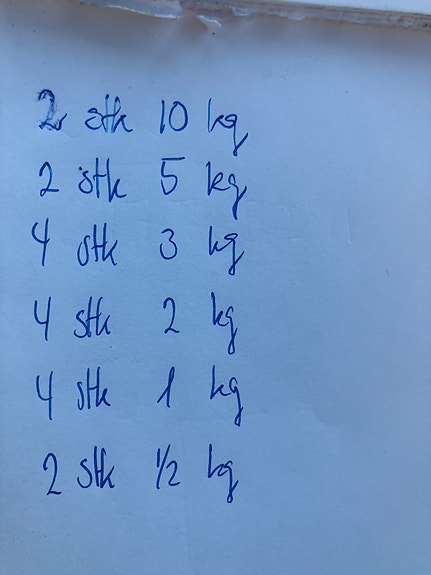 2 stk 10 kg
2 stk 5 kg
4 stk 3 kg
4 stk 2 kg
4 stk 1 kg
2 stk 1/2 kg